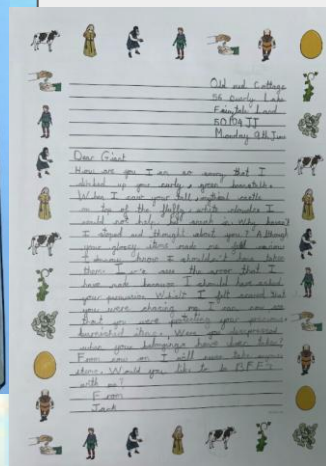 Old red Cottage
56 Curly Lake
Fairytale Land
50104 JJ
Monday 9th June
Dear Giant
How are you I am so sorry that I
climbed up your curly, green beanstalk.
When I saw your tall, mythical castle
on top of the fluffy, white clouds I
could not help but Why haven't
I stoped and thought about you? Although
your glossy items made me feel
I know I shouldn't have taken
them. I see the error that I
have made because I should have asked
your permission. Whilst I felt scared that
you were chasing me I can now see
that you were protecting your precious,
items. Were you depressed
when your belongings have been taken?
From now on I will never take anyones
items. Would you like to be B.F.F.s
with me?
From
Jack